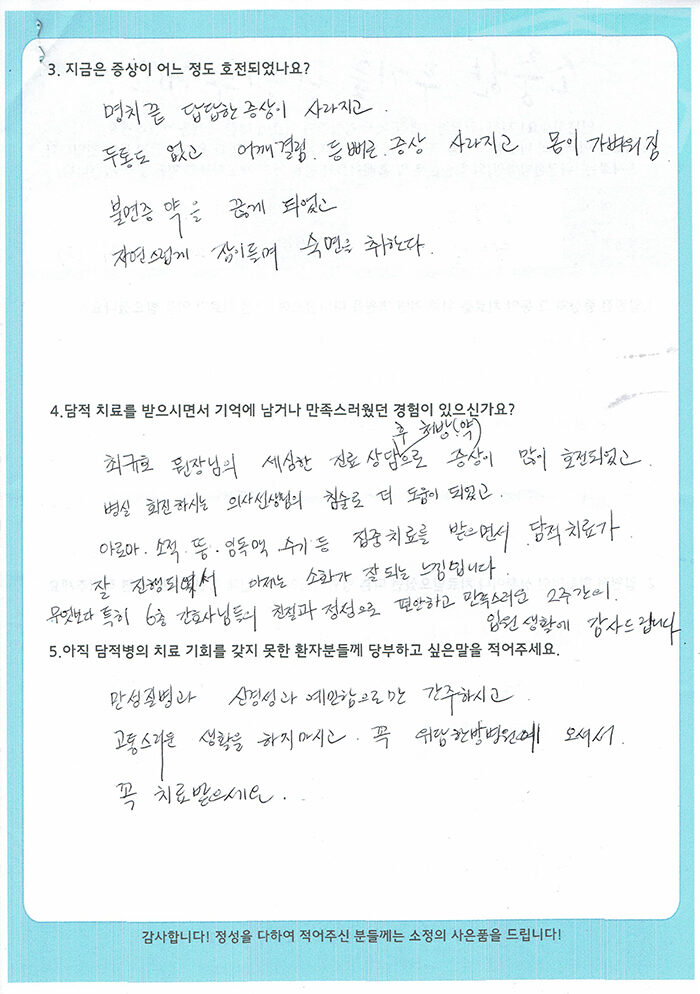 3. 지금은 증상이 어느 정도 호전되었나요?
명치끝 답답한 증상이 사라지고.
두통도 없고 어깨결림. 등뻐근 증상 사라지고 몸이 가벼워짐.
불면증 약을 끊게 되었고
자연스럽게 잠이들며 숙면을 취한다.
4.담적 치료를 받으시면서 기억에 남거나 만족스러웠던 경험이 있으신가요?
후 처방(약)
최규호 원장님의 세심한 진료 상담으로 증상이 많이 호전되었고
병실 회진하시는 의사선생님의 침술로 더 도움이 되었고.
아로마. 소적. 뜸. 수기 등 집중치료를 받으면서 담적치료가
잘 진행되어서 이제는 소화가 잘 되는 느낌입니다.
무엇보다 특히 6층 간호사님들의 친절과 정성으로 편안하고 만족스러운 2주간의
입원 생활에 감사드립니다
5.아직 담적병의 치료 기회를 갖지 못한 환자분들께 당부하고 싶은말을 적어주세요.
만성질병과 신경성과 예민함으로만 간주하시고
고통스러운 생활을 하지마시고. 꼭 위담한방병원에 오셔서
꼭 치료받으세요.
감사합니다! 정성을 다하여 적어주신 분들께는 소정의 사은품을 드립니다!